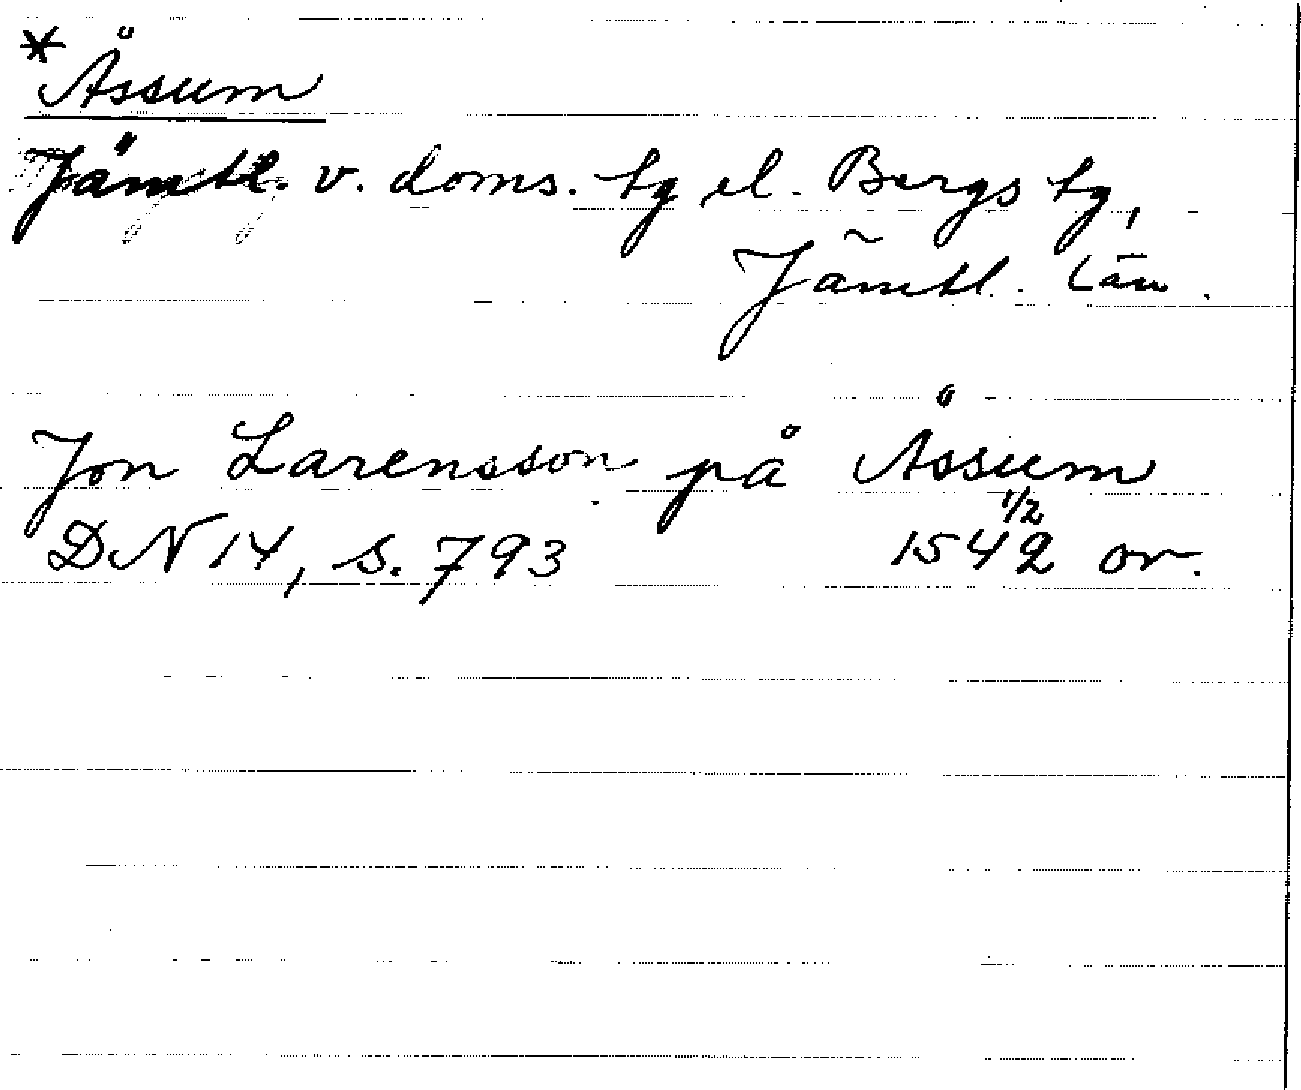 * Åssum
Jämtl. v. doms. tg el. Bergs tg,
Jämtl. län.
Jon Larensson på Åssum
DN 14, s. 793 1542 1/2 or.